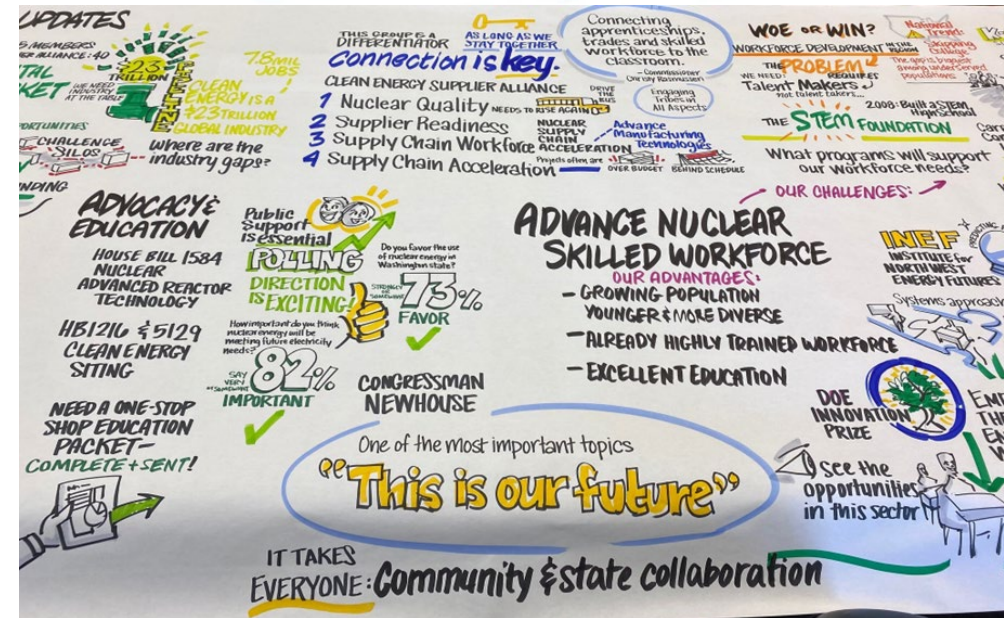 UPDATES
5 MEMBERS
ER ALLIANCE: 40
TAL
KET
WE NEED
INDUSTRY
AT THE TABLE
$23
TRILLION
PRISTINE
7.8 MIL
JOBS
CLEAN
ENERGY IS A
$23 TRILLION
GLOBAL INDUSTRY
PORTUNITIES
CHALLENGE
SILOS
Where are the
industry gaps?
NDING
THIS GROUP IS A
DIFFERENTIATOR
AS LONG AS WE
STAY TOGETHER
Connection is key.
CLEAN ENERGY SUPPLIER ALLIANCE
1 Nuclear Quality NEEDS TO RISE AGAIN
2 Supplier Readiness
3 Supply Chain Workforce
4 Supply Chain Acceleration
DRIVE
THE
BUS
NUCLEAR
SUPPLY
CHAIN
ACCELERATION
Advance
Manufacturing
Technologies
Projects often are
OVER BUDGET
BEHIND SCHEDULE
Connecting
apprenticeships,
trades and skilled
workforce to the
classroom.
- Commissioner
Christy Rasmussen
Engaging
Tribes in
All Aspects
WOE OR WIN?
WORKFORCE DEVELOPMENT IN THE REGION
THE PROBLEM
WE NEED
REQUIRES
Talent Makers
not talent takers...
National
Trend:
Skipping
College
The gap is biggest
among underserved
populations
THE STEM FOUNDATION
2008: Built a STEM
High School
What programs will support
our workforce needs?
OUR CHALLENGES:
ADVOCACY &
EDUCATION
HOUSE BILL 1584
NUCLEAR
ADVANCED REACTOR
TECHNOLOGY
HB1216 & 5129
CLEAN ENERGY
SITING
NEED A ONE-STOP
SHOP EDUCATION
PACKET-
COMPLETE + SENT!
Public
Support
is essential
POLLING
DIRECTION
IS EXCITING!
Do you favor the use
of nuclear energy in
Washington state?
STRONGLY
OR SOMEWHAT
73%
FAVOR
How important do you think
nuclear energy will be
meeting future electricity
needs?
SAY
VERY
OR SOMEWHAT
82%
IMPORTANT
CONGRESSMAN
NEWHOUSE
ADVANCE NUCLEAR
SKILLED WORKFORCE
OUR ADVANTAGES:
- GROWING POPULATION
YOUNGER & MORE DIVERSE
- ALREADY HIGHLY TRAINED WORKFORCE
- EXCELLENT EDUCATION
INEF
INSTITUTE for
NORTHWEST
ENERGY FUTURES
Systems approach
DOE
INNOVATION
PRIZE
See the
opportunities
in this sector
One of the most important topics
"This is our future"
IT TAKES
EVERYONE: Community & state collaboration